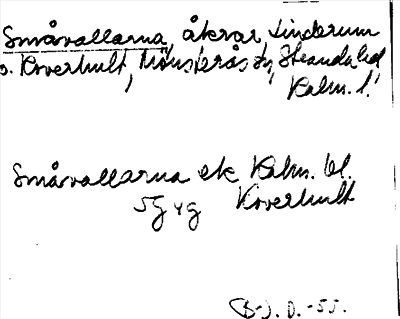 Småvallarna, åkrar
o. Koverhult, Mönsterås sn, Stranda hd
Kalm. l.
Småvallarna ek Kalm. bl.
5G 4g Koverhult
B-J. D. -55.